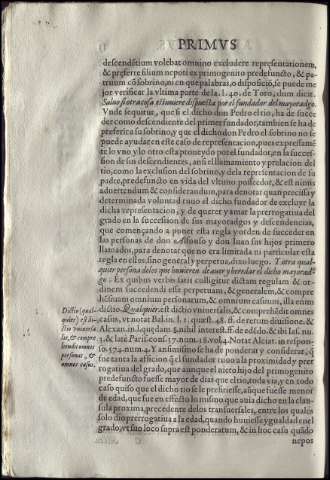 PRIMVS
descenditium volebat omnino excludere representationem,
& preferre filium nepoti ex primogenito predefuncto, & pa-
truum cõ sobrino, ni en que palabras, o disposiciõ, se puede me
jor verificar la vltima parte de la l. 40. de Toro, dum dicit.
Saluo si otra cosa estuuiere dispuesta por el fundador del mayoradgo.
Vnde sequitur, que si el dicho don Pedro el tio, ha de suce-
der como descendiente del primer fundador, tambien se ha de
preferir a su sobrino, y que el dicho don Pedro el sobrino no se
puede ayudar en este caso de representacion, pues expressamẽ
te lo vno y lo otro està proueydo por el fundador, en la succes-
sion de sus descendientes, ansi el llamamiento y prelacion del
tio, como la exclusion del sobrino, y dela representacion de su
padre, predefuncto en vida del vltimo possedor, & est nimis
aduertendum & considerandum, para denotar quan precisa y
determinada voluntad tuuo el dicho fundador de excluyr la
dicha representacion, y de querer y amar la prerrogatiua del
grado en la succession de sus mayoradgos y descendencias,
que començando a poner esta regla y orden de succeder en
las personas de don Alfonso y don Iuan sus hijos primero
llamados, para denotar que no era limitada su particular esta
regla en ellos, sino general y perpetua, dixo luego. Y otra qual-
quier persona delos que huuieren de auer y heredar el dicho mayorad-
go: Ex quibus verbis latè colligitur dictam regulam & or-
dinem succedendi esse perpetuum, & generalem, & compre
hẽsiuum omnium personarum, & omnium casuum, illa enim
dictio, & qualquier. est dictio vniuersalis, & comprehẽdit omnes
casus, vt notat Bald. l. 1. quæst. 48. ff. de rerum diuisione, &
Alexan. in l. quædam. §. nihil interest. ff. de edẽdo. & ibi Ias. nu.
3. & latè Paris cons. 17. num. 18. vol. 4. Notat Alciat. in respon-
so. 574. num. 4. Y anssi mismo se ha de ponderar y considerar, q̃
fue tanta la aficion q̃ el fundador tuuo a la proximidad y prer
rogatiua del grado, que aunque el nieto hijo del primogenito
predefuncto fuesse mayor de dias que el tio, toda via, y en todo
caso quiso que el dicho tio se le prefiriesse, aũque fuesse menor
de edad, que fue en effecto lo mismo que auia dicho en la clau-
sula proxima, precedente delos transuersales, entre los quales
solo dio prerrogatiua a la edad, quando huuiesse ygualdad en el
grado, vt suo loco supra est ponderatum, & in hoc casu quãdo
nepos
Dictio (qual-
quier) est di-
ctio vniuersa-
lis, & compre
hendit omnes
personas, &
omnes casus.